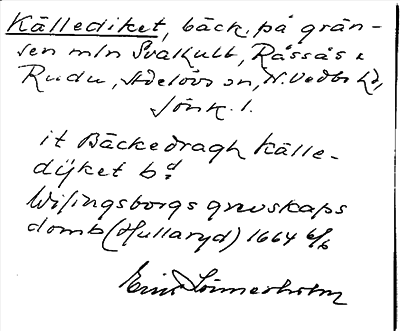 Källediket, bäck, på grän-
sen mln Svalkult, Råssås &
Rudu, Adelövs sn, N. Vedbo hd,
Jönk. l.
it Bäckedragh Källe-
dijket bd:
Wisingsborgs grevskaps
domb (Hullaryd) 1664 6/6
Einar Lönnerholm